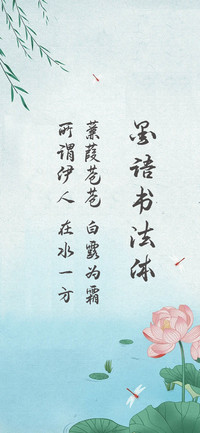 墨语书法体
蒹葭苍苍 白露为霜
所谓伊人 在水一方